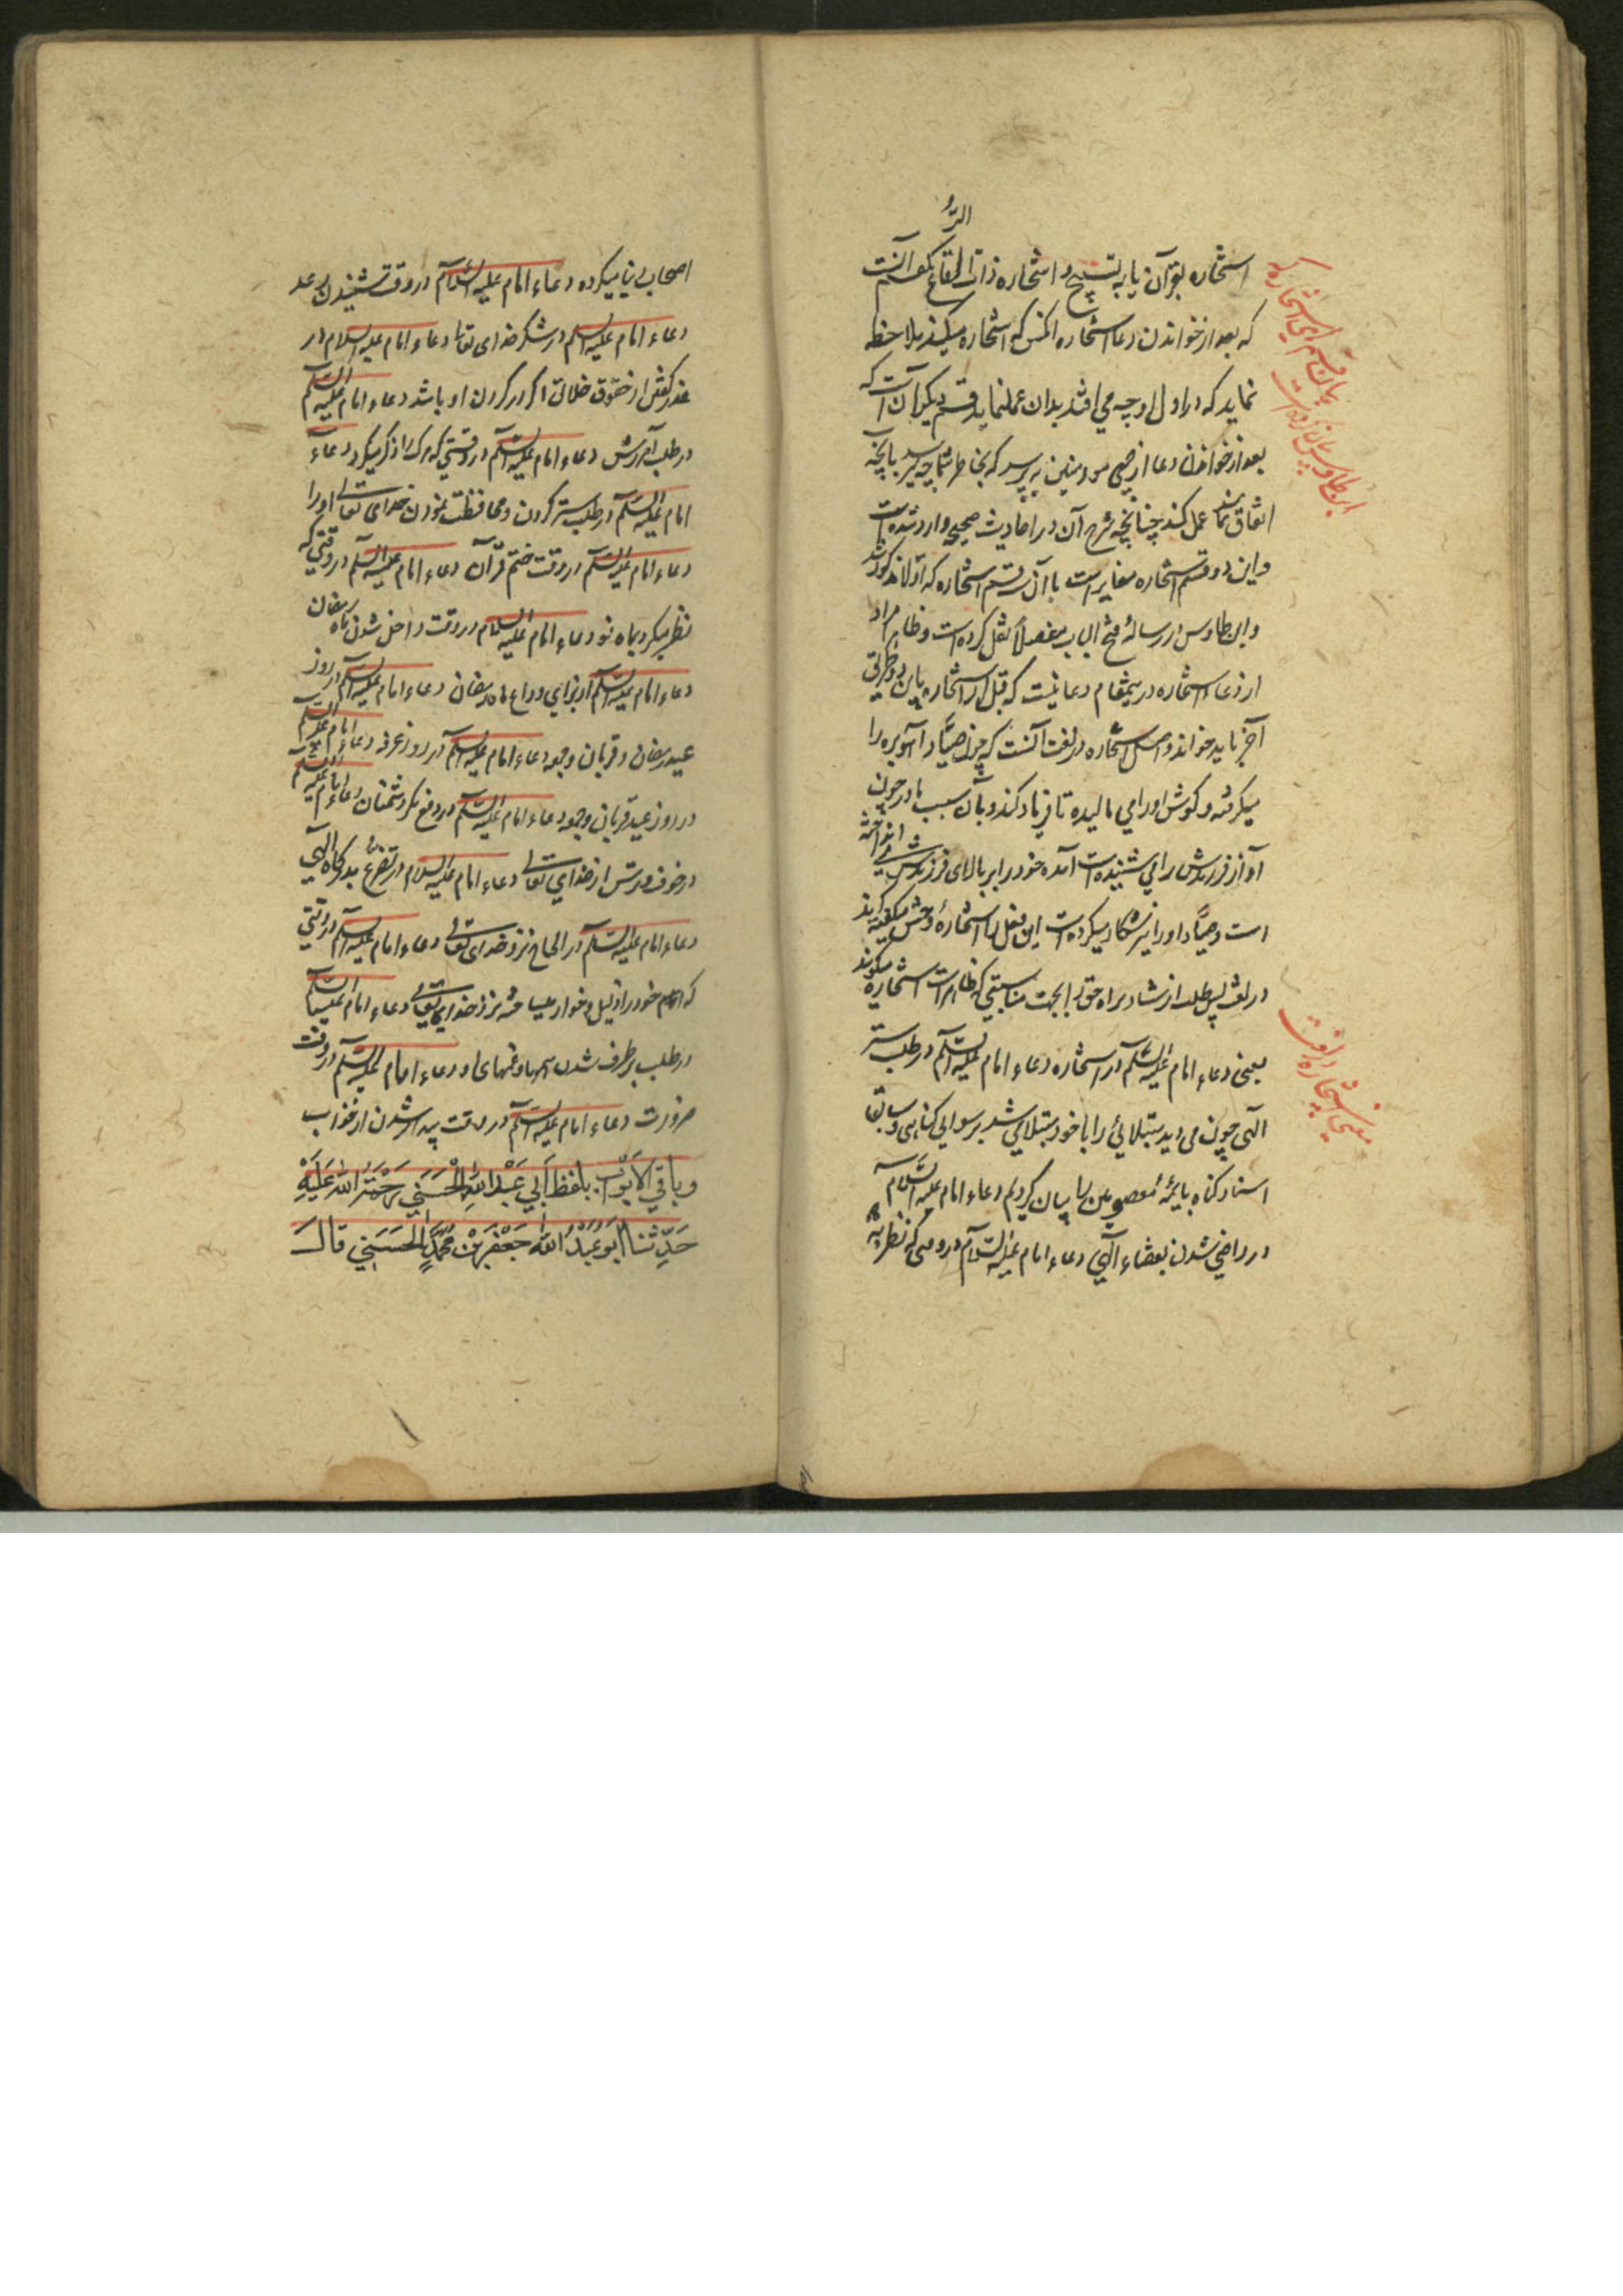 استخاره بقرآن یا به تسبیح و استخاره ذات الرقاع یکقسم آنست
که بعد از خواندن دعا استخاره آنکس که استخاره میکند ملاحظه
نماید که در اول او چه می افتد بدان عمل نماید و قسم دیگر آن است که
بعد از خواندن دعا از بعضی مومنین بپرسد که بخاطر شما چه میرسد بآنچه
اتفاق نمایند عمل کند چنانچه شرح آن در احادیث صحیحه وارد شده است
و این دو قسم استخاره مغایر است با آن قسم استخاره که اولا مذکور شد
و ابن طاوس در رساله فتح الباب مفصلاً نقل کرده است و ظاهراً مراد
از دعاء استخاره در یمقام دعائیست که قبل از استخاره باین دو طریق
آخر باید خواند و اصل استخاره در لغت آنست که چون صیّاد آهو بره را
میگرفته و گوش او را می مالیده تا فریاد کند و بآن سبب مادر چون
آواز فرزندش را می شنیده است آمده خود را بر بالای فرزندش می انداخته
است و صیّاد او را نیز شکار میکرده است این فعل را استخارهٔ وحش میگفته اند
در لغت پس طلب ارشاد براه حق را بجهت مناسبتی که ظاهر است استخاره میگویند
یعنی دعاء امام علیه السّلام در استخاره دعاء امام علیه السّلام در طلب ستر
الهی چون می دید مبتلائی را یا خود مبتلا می شد برسوایی گناهی و سابق
اسناد گناه بائمهٔ معصومین را بیان کردیم دعاء امام علیه السّلام
در راضی شدن بقضاء الهی دعاء امام علیه السّلام در وقتی که نظر به
بیان قسم استخاره که
ابن طاوس بیان کرده است
معنی استخاره در لغت
اصحاب دنیا میکرده دعاء امام علیه السّلام در وقت شنیدن رعد
دعاء امام علیه السّلم در شکر خدای تعالی دعاء امام علیه السلام در
عذر گفتن از حقوق خلائق اگر در گردن او باشد دعاء امام علیه السّلم
در طلب آمرزش دعاء امام علیه السّلم در وقتی که مرک را ذکر میکرد دعاء
امام علیه السّلم در طلب ستر کردن و محافظت نمودن خدای تعالی او را
دعاء امام علیه السّلم در وقت ختم قرآن دعاء امام علیه السّلم در وقتی که
نظر میکرد بماه نو دعاء امام علیه السلام در وقت داخل شدن ماه رمضان
دعاء امام علیه السّلم از برای وداع ماه رمضان دعاء امام علیه السّلم در روز
عید رمضان و قربان و جمعه دعاء امام علیه السّلم در روز عرفه دعاء امام علیه السّلم
در روز عید قربان و جمعه دعاء امام علیه السّلم در دفع مکر دشمنان دعاء امام علیه السّلم
در خوف و ترس از خدای تعالی دعاء امام علیه السلام در تضرّع بدرگاه الهی
دعاء امام علیه السّلم در الحاح نزد خدای تعالی دعاء امام علیه السّلم در وقتی
که امام خود را ذلیل و خوار میساخته نزد خدای تعالی دعاء امام علیه السّلم
در طلب برطرف شدن همها و غمهای او دعاء امام علیه السّلم در وقت
ضرورت دعاء امام علیه السّلم در وقت بیدار شدن از خواب
وَباقِي الأَبْوابِ بِلَفظِ أَبِي عَبْدِاللهِ الْحَسَنِي رَحْمَةُ اللهِ عَلَيْهِ
حَدَّثَنا اَبُو عَبْدُ اللهِ جَعْفَرِ بْنِ مُحَمَّدٍ الْحَسَنِي قالَ